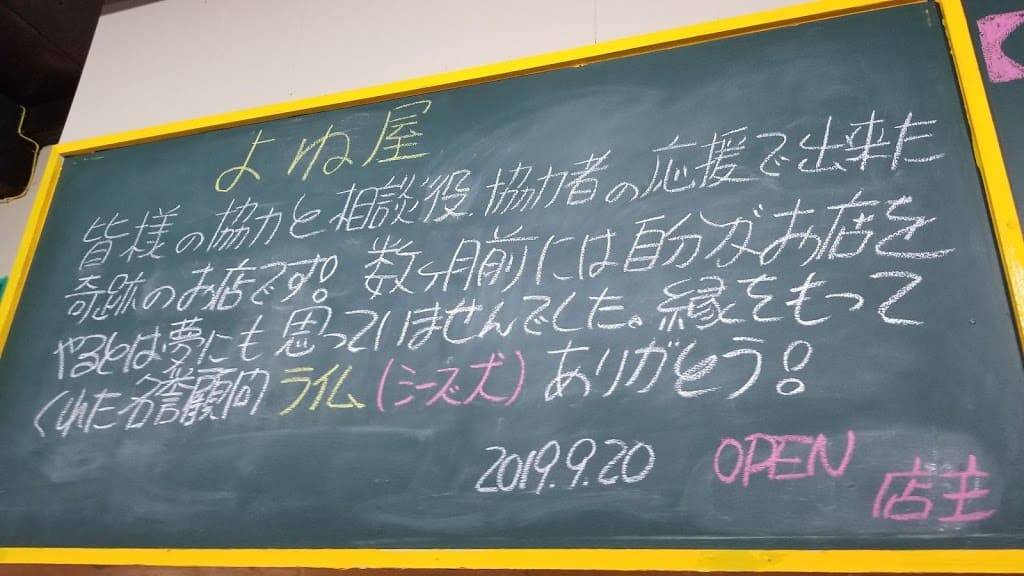 よね屋
皆様の協力と相談役、協力者の応援で出来た
奇跡のお店です! 数ヶ月前には自分がお店を
やるとは夢にも思っていませんでした。縁をもって
くれた名誉顧問ライム(シーズ犬)ありがとう!
2019.9.20 OPEN
店主